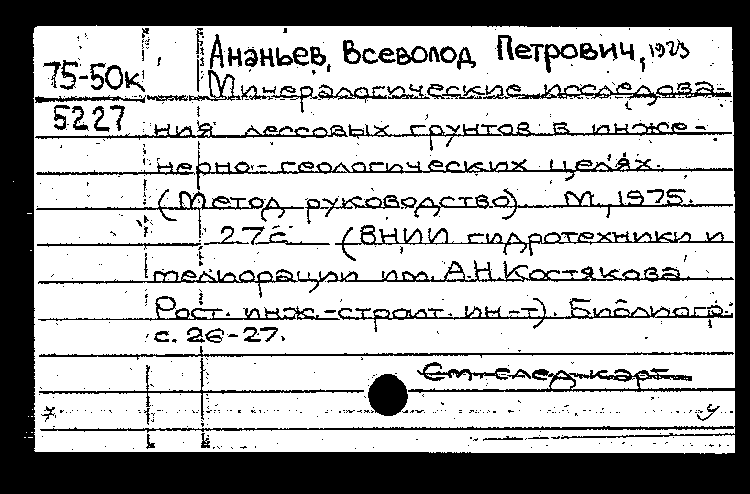 Ананьев, Всеволод Петрович, 1923
75-50к
Минералогические исследова-
5227
ния лессовых грунтов в инже-
нерно-геологических целях.
(Метод руководство) М., 1975.
27с (ВНИИ гидротехники и
мелиорации им. А.Н. Костякова.
Рост. инж.-строит. ин-т). Библиогр:
с. 26-27.
См след карт